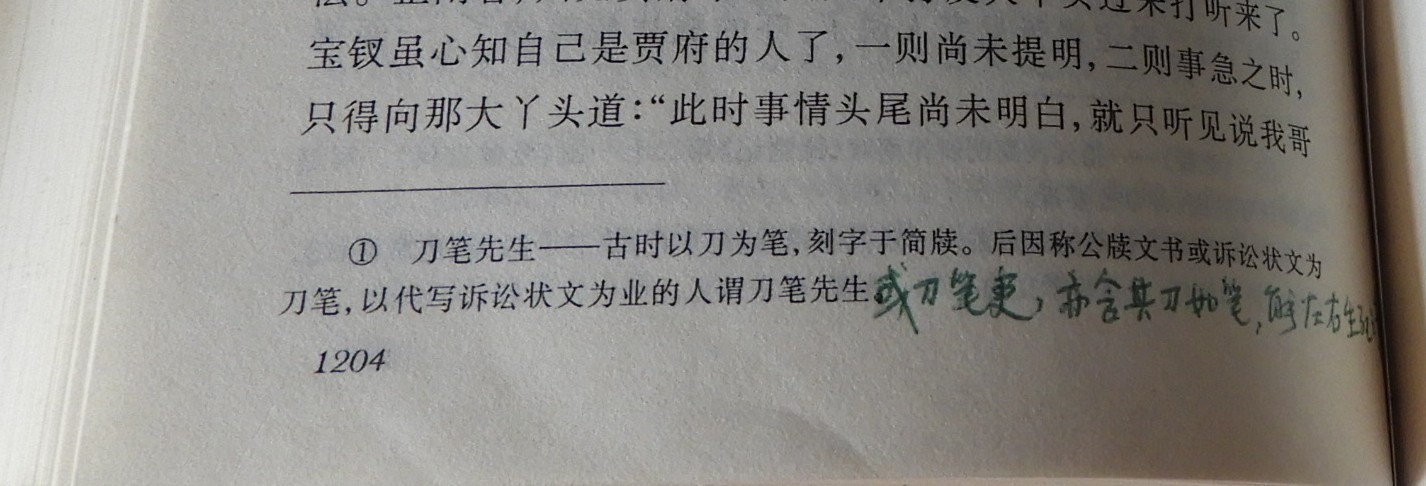 过来打听来了。
宝钗虽心知自己是贾府的人了,一则尚未提明,二则事急之时,
只得向那大丫头道:“此时事情头尾尚未明白,就只听见说我哥
① 刀笔先生——古时以刀为笔,刻字于简牍。后因称公牍文书或诉讼状文为
刀笔,以代写诉讼状文为业的人谓刀笔先生。或刀笔吏,亦含其刀如笔,能左右生死
1204